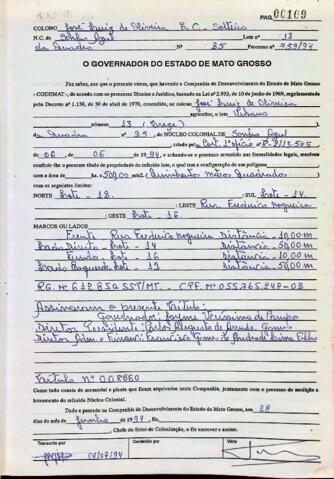 PAG. 00109
COLONO José Luiz de Oliveira B. C. Solteiro
N.C. de Sonho Azul Lote nº 13
da Quadra Nº 25 Processo nº 759/94
O GOVERNADOR DO ESTADO DE MATO GROSSO
Faz saber, aos que o presente virem, que havendo a Companhia de Desenvolvimento do Estado de Mato Grosso
- CODEMAT -, de acordo com os preceitos Técnico e Jurídico, baseado na Lei nº 2.933, de 10 de junho de 1969, regulamentada
pelo Decreto nº 1.138, de 30 de abril de 1970, concedido, ao colono José Luiz de Oliveira
agricultor, o Lote Urbano
número 13 (Treze)
da Quadra nº 25, do NÚCLEO COLONIAL DE Sonho Azul
criado pela
de 06 de 06 de 1994, e achando-se o processo revestido das formalidades legais, resolveu
conferir-lhe o presente título de propriedade do referido lote, o qual tem a configuração de um polígono
com a área de has. 500,00 mts. Quinhentos Metros Quadrados
com os seguintes limites:
NORTE Lote - 12 ; SUL Lote - 14
; LESTE Rua Frederico Nogueira
; OESTE Lote - 16
MARCOS OU LADOS
Frente - Rua Frederico Nogueira Distância - 10,00 m
Lado Direito - Lote - 14 Distância - 50,00 m
Fundo - Lote - 16 Distância - 10,00 m
Lado Esquerdo - Lote - 12 Distância - 50,00 m
R.G. Nº 612.850 SSP/MT. - CPF. Nº 055.765.248-03
Assinaram o presente Título:
Governador: Jayme Veríssimo de Campos
Diretor Presidente: Carlos Augusto de Arruda Gomes
Diretor Adm. e Financ.: Francisco Gomes de Andrade Lima Filho
Título Nº 008660
Tudo como consta do memorial e planta que ficam arquivados nesta Companhia, juntamente com o processo de medição e
loteamento do referido Núcleo Colonial.
Dado e passado na Companhia de Desenvolvimento do Estado de Mato Grosso, aos 28
dias do mês de Junho de 1994. Eu,
, Chefe do Setor de Colonização, o fiz escrever e assino.
Transcrito por Conferido por Visto
07/07/94